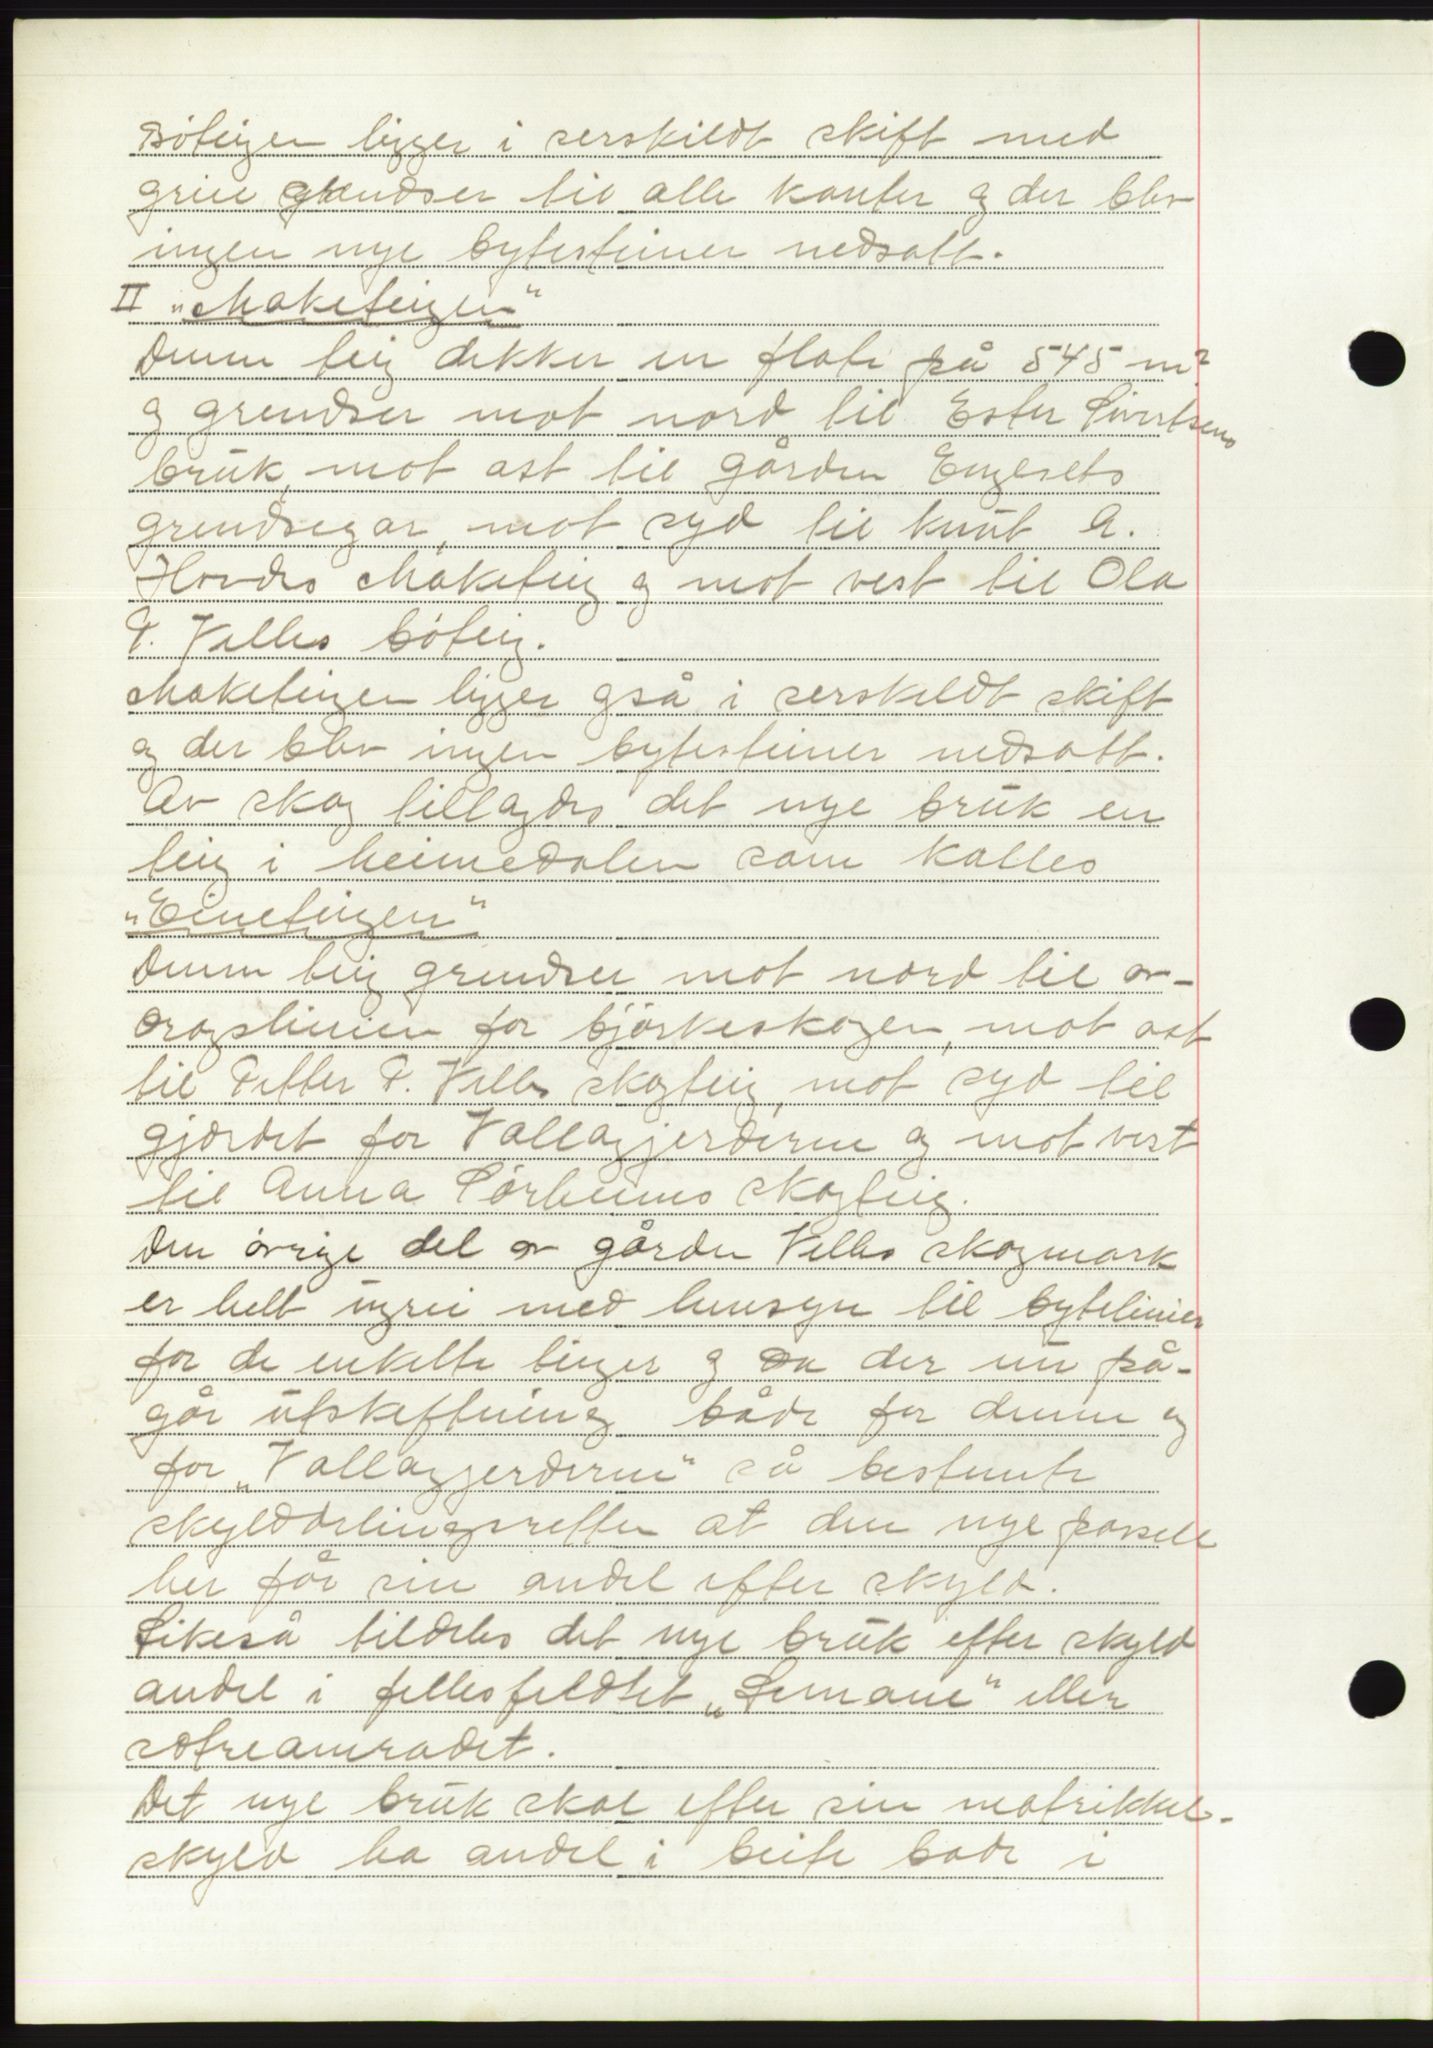 Böteigen ligger i serskildt skift med
greie grendser til alle kanter og der blev
ingen nye bytesteiner nedsatt.
II „Maketeigen"
Denne teig dekker en flate på 545 m²
og grendser mot nord til Ester Sivertsens
bruk, mot ost til gården Engesets
grendsegar, mot syd til Knut A.
Hovdes Maketeig og mot vest til Ola
P. Velles böteig.
Maketeigen ligger også i serskildt skift
og der blev ingen bytesteiner nedsatt.
Av skog tillagdes det nye bruk en
teig i heimedalen som kalles
„Eineteigen"
Denne teig grendser mot nord til av-
dragslinien for björkeskogen, mot ost
til Petter P. Velles skogteig, mot syd til
gjærdet for Vallagjerderne og mot vest
til Anna Sörheims skogteig.
Den övrige del av gården Velles skogmark
er helt ugrei med hensyn til bytelinier
for de enkelte teiger og da der nu på-
går utskiftning både for denne og
for „Vallagjerderne" så bestemte
skylddelingsretten at den nye parsell
her får sin andel efter skyld.
Likeså tildeles det nye bruk efter skyld
andel i fellesfeldtet „Lemane" eller
sætreamradet.
Det nye bruk skal efter sin matrikkel-
skyld ha andel i beite bade i